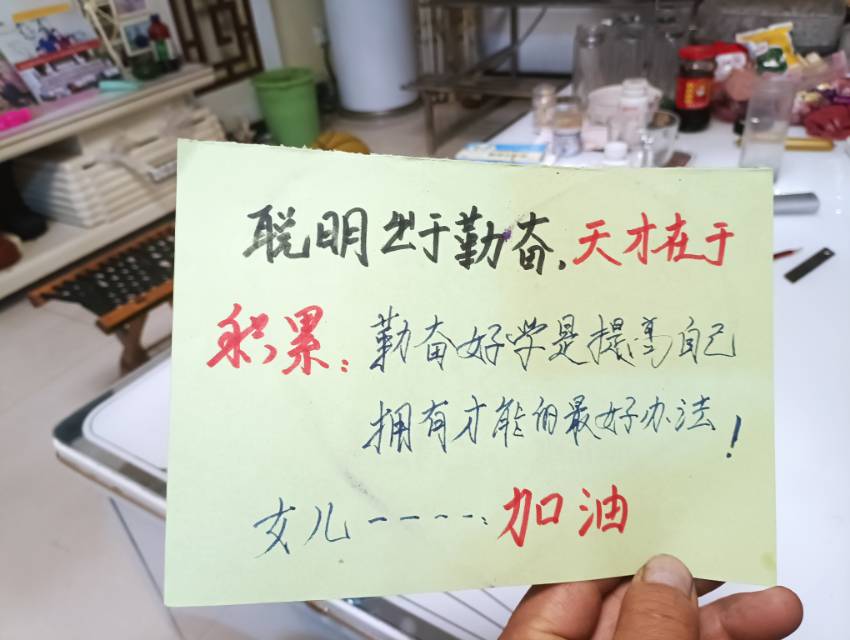 聪明出于勤奋,天才在于
积累:勤奋好学是提高自己
拥有才能的最好办法!
女儿----:加油